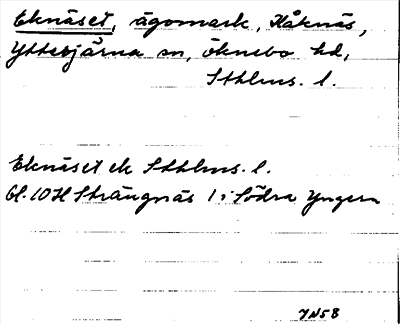 Eknäset, ägomark, Håknäs,
Ytterjärna sn, Öknebo hd,
Sthlms. l.
Eknäset ek Sthlms. l.
bl. 10H Strängnäs 1 i Södra Yngern